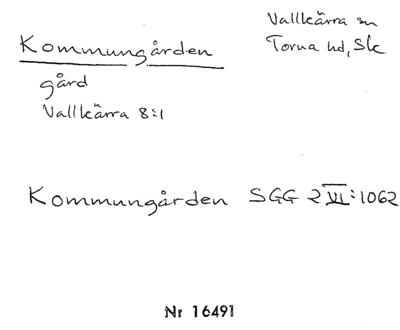 Kommungården
Vallkärra sn
Torna hd, Sk
gård
Vallkärra 8:1
Kommungården SGG 2 VI:1062
Nr 16491